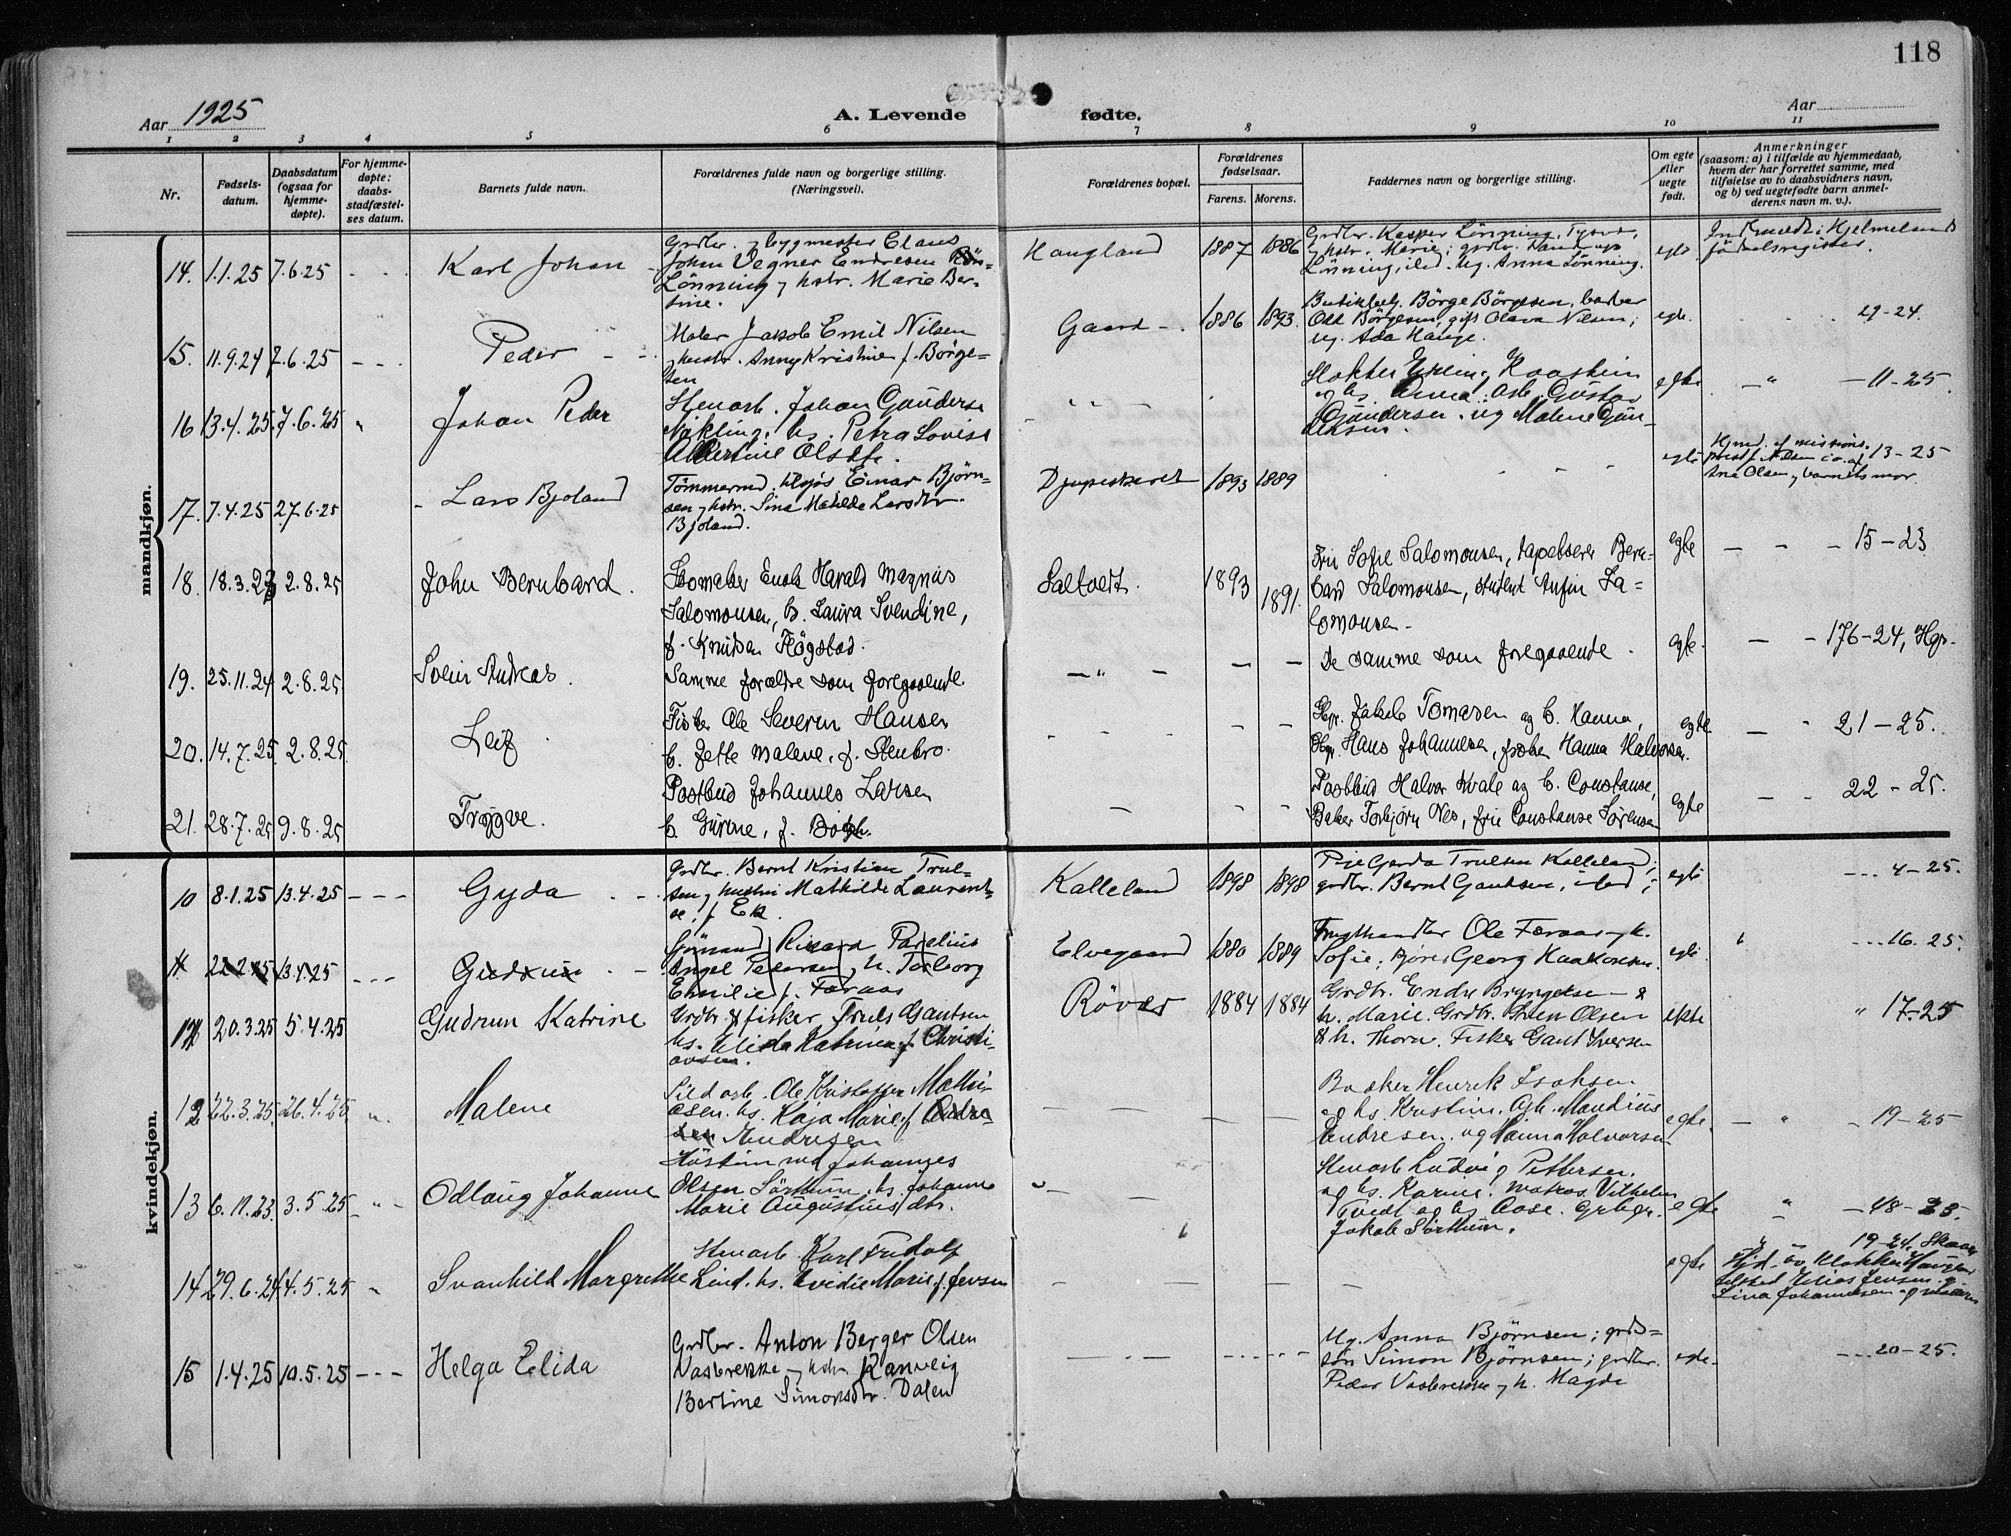 118
Aar 1925
A. Levende fødte.
Aar
1 2 3 4 5 6 7 8 9 10 11
Nr.
Fødsels-
datum.
Daabsdatum
(ogsaa for
hjemme-
døpte).
For hjemme-
døpte:
daabs-
stadfæstel-
ses datum.
Barnets fulde navn.
Forældrenes fulde navn og borgerlige stilling.
(Næringsvei).
Forældrenes bopæl.
Forældrenes
fødselsaar.
Farens. Morens.
Faddernes navn og borgerlige stilling.
Om egte
eller
uegte
født.
Anmerkninger
(saasom: a) i tilfælde av hjemmedaab,
hvem der har forrettet samme, med
tilføielse av to daabsvidners navn,
og b) ved uegtefødte barn anmel-
derens navn m. v.).
mandkjøn.
14. 1.1.25 7.6.25 - - - Karl Johan
Grdbr. & bygmester Claus
Johan Vegner Endresen
Lönning & hstr. Marie Ber-
tine.
Haugland 1887 1886
Grdbr. Kasper Lönning, Tysvær,
& hstr. Marie; grdbr.
Lönning, ibd. Ug. Anna Lönning.
egte
Indmeldt i Hjelmelands
födselsregister.
15. 11.9.24 7.6.25 - - - Peder
Maler Jakob Emil Nilsen
& hustr. Anny Kristine f. Börge-
sen
Gaard 1886 1893.
Butikbet. Börge Börgesen, barber
Odd Börgesen, gift Olava Nilsen;
ug. Ada Hauge.
egte. 29-24.
16 13.4.25 7.6.25 " Johan Peder
Stenarb. Johan Gunderse
Nökling, hs. Petra Lovise
Albertine Olsdtr.
Slakter Elling Kaastein
og hs. Anna. Arb. Gustav
Gundersen. ug Malene Gun-
dersen.
egte - " - 11-25.
17. 7.4.25 27.6.25 - Lars Bjoland
Tömmermd. Einar Björn-
sen & hstr. Sina Matilde Larsdtr
Bjoland.
Djupeskaret 1893 1889
egte
Hjmd. af missions-
prest f. Nilsen i o. af 13-25
Ana Olsen & barnets mor.
18. 18.3.23 2.8.25 John Bernhard.
Skomaker Enok Harald Magnus
Salomonsen, h. Laura Svendine,
f. Knutsen Fløgstad.
Saltveit. 1893 1891.
Fru Sofie Salomonsen, tapetserer Bern-
hard Salomonsen, student Anfin Sa-
lomonsen.
egte - - - 15-23
19. 25.11.24 2.8.25 Svein Andreas.
Samme forældre som foregaaende.
- " - - -
De samme som foregaaende.
egte. - - 176-24, Hgs.
20. 14.7.25 2.8.25. Leif.
Fisker Ole Severin Hansen
h. Jette Malene, f. Stenbro.
- -
Jakob Tomasen og h. Hanna,
Hans Johannesen, frøken Hanna Halvorsen.
egte - - 21-25.
21. 28.7.25 9.8.25 Trygve.
Postbud Johannes Larsen
h. Gurine, f. Bokn.
- - -
Postbud Halvor Kvale og h. Constanse,
Baker Torbjørn Nes, fru Constanse Sørensen
egte - - 22-25.
kvindekjøn.
10 8.1.25 13.4.25 - - - Gyda
Grdbr. Bernt Kristian Trul-
sen & hustru Mathilde Laurent-
se, f. Ek.
Kalleland 1898 1898
Pige Gerda Trulsen Kalleland;
grdbr. Bernt Gautsen, ibd;
egte - - - 4-25.
11 22.2.25 13.4.25 - - - Gudrun
Sjömand Rikard Parelius
Angel Pedersen, h. Torborg
Emilie f. Foraas
Elvegaard 1880 1889
Frugthandler Ole Foraas & h.
Sofie; Georg Haakonsen.
egte - - - 16.25.
11 20.3.25 5.4.25 Gudrun Katrine
Grdbr & fisker Truls Gautsen
hs. Elida Katrine f. Christi-
ansen.
Rövær 1884 1884
Grdbr. Endre Bryngelse &
h. Marie Grdbr. Sven Olsen
& h. Thora. Fisker Gaut Iversen
ekte " 17-25
12 22.3.25 26.4.25 " Malene
Sildarb. Ole Kristoffer Mathi-
asen. hs. Kaja Marie f. Andre-
sen Endresen
- - - -
Baaker Henrik Isaksen
og hs. Kristine, Arb. Mandius
Endresen. og Hanna Halvorsen
egte. - " - 19-25
13 6.11.23. 3.5.25 - " - Odlaug Johanne
Johannes
Olsen Sörthun. hs. Johanne
Marie Augustinus dtr.
" - -
Stenarb Ludvig Pettersen.
og hs. Karine. Matros Vilhelm
Tveit og hs Aase. Grbgr.
Jakob Sörthun.
egte " - 48-23.
14 29.6.24 4.5.25 " Svanhild Margrethe
Stenarb. Karl Fridolf
Lind. hs. Evidie Marie f. Jensen
- - - - -
egte " - 19-24. Skaare
Hjd. av Klokker Haugen
tilsted Elias Jensen. og
Lina Johannesen og moderen
15 1.4.25 10.5.25 - - - Helga Elida
Grdbr. Anton Berger Olsen
Vasbrekke & hstr. Ranveig
Bertine Simonsdtr. Dalen
- - - - - -
Ug. Anna Björnsen; grds=
søn Simon Björnsen; grdbr.
Peder Vasbrekke & h. Magda
egte. - - - 20-25.